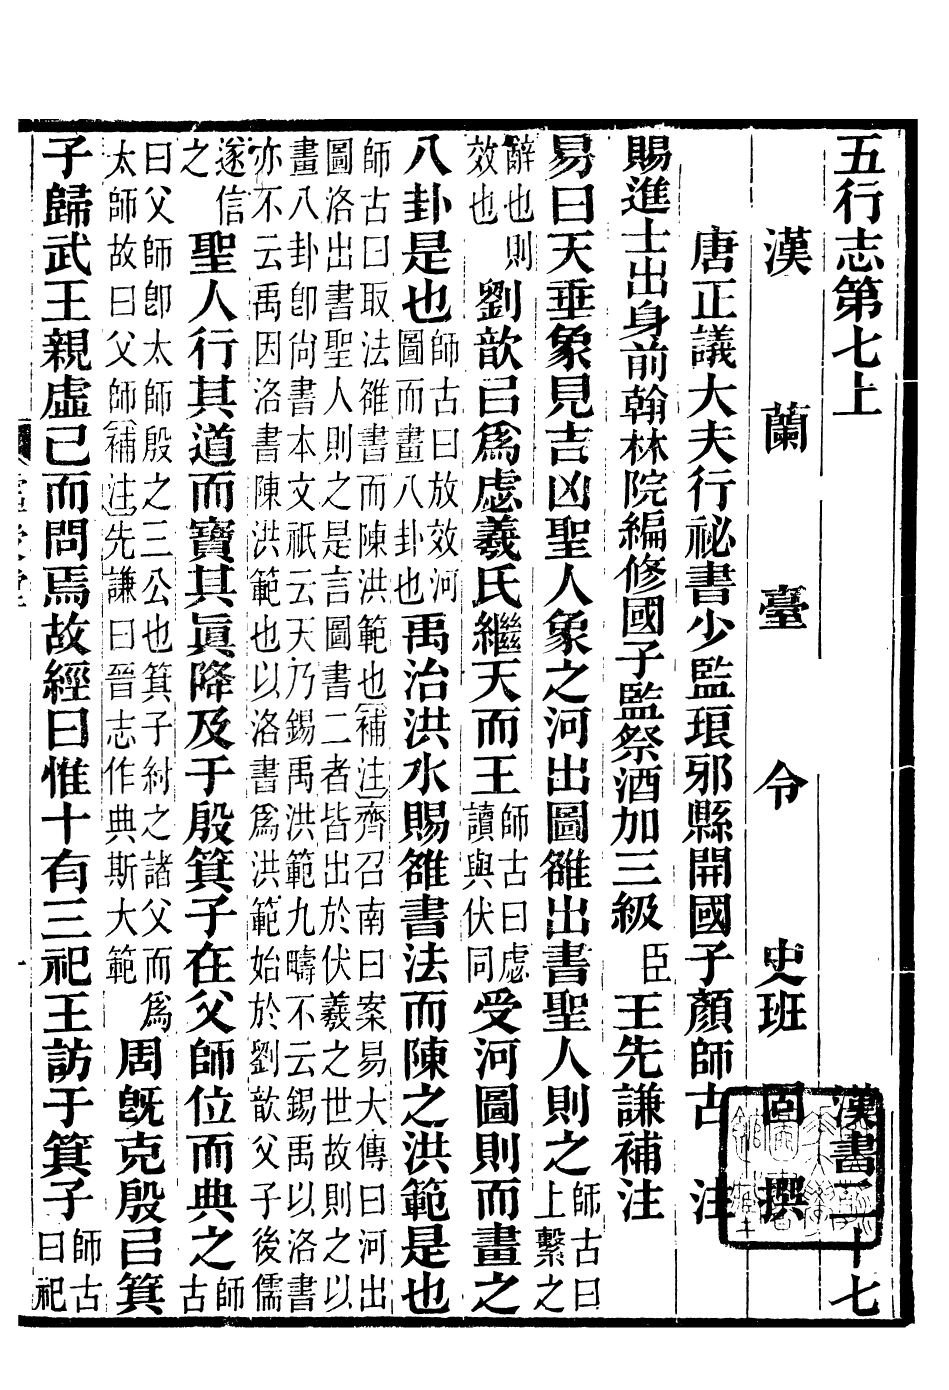 五行志第七上　漢書二十七
漢蘭臺令史班固撰
唐正議大夫行祕書少監琅邪縣開國子顏師古注
賜進士出身前翰林院編修國子監祭酒加三級臣王先謙補注
易曰天垂象見吉凶聖人象之河出圖雒出書聖人則之師古曰上繫之
辭也則效也劉歆㠯爲虙羲氏繼天而王師古曰虙讀與伏同受河圖則而畫之
八卦是也師古曰放效河圖而畫八卦也禹治洪水賜雒書法而陳之洪範是也
師古曰取法雒書而陳洪範也補注齊召南曰案易大傳曰河出
圖洛出書聖人則之是言圖書二者皆出於伏羲之世故則之以
畫八卦卽尙書本文祇云天乃錫禹洪範九疇不云錫禹以洛書
亦不云禹因洛書陳洪範也以洛書爲洪範始於劉歆父子後儒
遂信之聖人行其道而寶其眞降及于殷箕子在父師位而典之師古
曰父師卽太師殷之三公也箕子紂之諸父而爲
太師故曰父師補注先謙曰晉志作典斯大範周旣克殷㠯箕
子歸武王親虛己而問焉故經曰惟十有三祀王訪于箕子師古曰祀